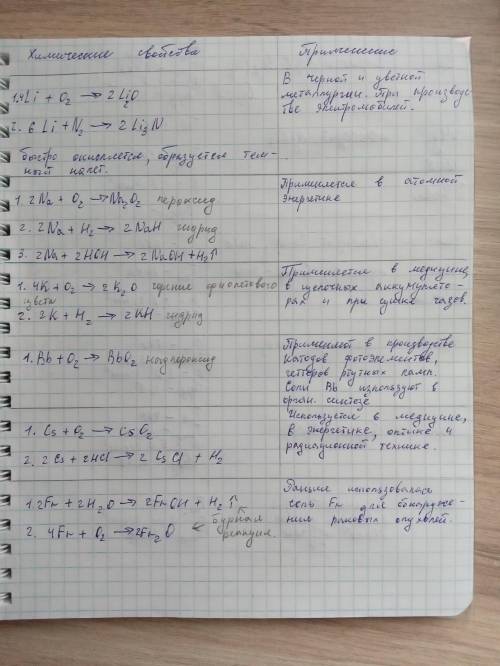 Химические свойства
Применение
1. 4Li + O₂ → 2Li₂O
2. 6Li + N₂ → 2Li₃N
быстро окисляется, образуется тем-
ный налет.
В черной и цветной
металлургии. При производс-
тве электромобилей.
1. 2Na + O₂ → Na₂O₂ пероксид
2. 2Na + H₂ → 2NaH гидрид
3. 2Na + 2HOH → 2NaOH + H₂↑
Применяется в атомной
энергетике
1. 4K + O₂ → 2K₂O горение фиолетового
цвета
2. 2K + H₂ → 2KH гидрид
Применяется в медицине,
в щелочных аккумулято-
рах и при
часов.
1. Rb + O₂ → RbO₂ надпероксид
Применяют в производстве
катодов фотоэлементов,
геттеров ртутных ламп.
Соли Rb используют в
орган. синтезе
1. Cs + O₂ → CsO₂
2. 2Cs + 2HCl → 2CsCl + H₂
Используется в медицине,
в энергетике, оптике и
радиационной технике.
1. 2Fr + 2H₂O → 2FrOH + H₂↑
2. 4Fr + O₂ → 2Fr₂O ← бурная
реакция.
Раньше использовалась
соль Fr для обнаруже-
ния раковых опухолей.